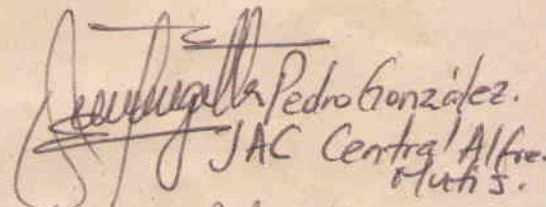 Pedro González.
JAC Central Alfre.
Mutis.